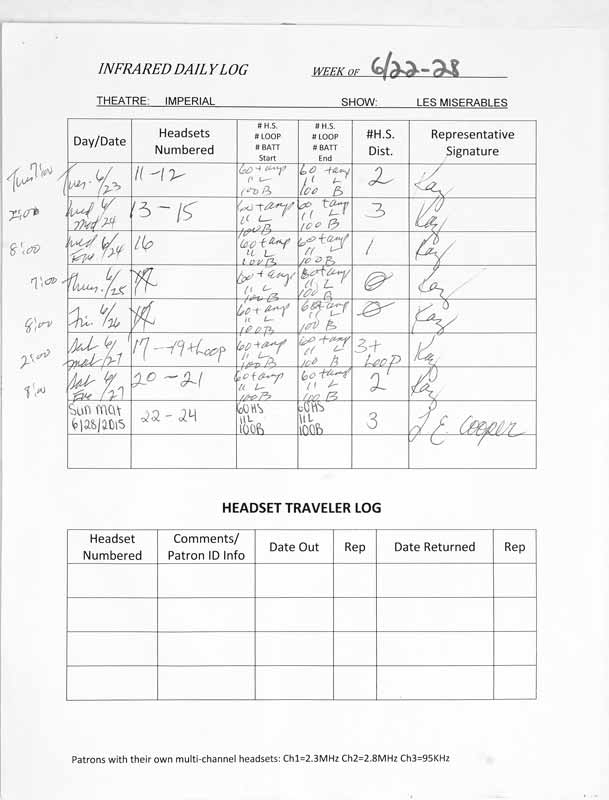 INFRARED DAILY LOG WEEK OF 6/22-28
THEATRE: IMPERIAL SHOW: LES MISERABLES
Day/Date Headsets Numbered # H.S. # LOOP # BATT Start # H.S. # LOOP # BATT End #H.S. Dist. Representative Signature
Tues 7:00 Tues. 6/23 11-12 60+amp 11 L 100 B 60 +amp 11 L 100 B 2 Kay
2:00 Wed 6/24 Mat 13-15 60+amp 11 L 100 B 60 +amp 11 L 100 B 3 Kay
8:00 Wed 6/24 Eve 16 60+amp 11 L 100 B 60+amp 11 L 100 B 1 Kay
7:00 Thurs. 6/25 60+amp 11 L 100 B 60+amp 11 L 100 B 0 Kay
8:00 Fri. 6/26 60+amp 11 L 100 B 60+amp 11 L 100 B 0 Kay
2:00 Sat 6/27 mat 17-19+Loop 60+amp 11 L 100 B 60+amp 11 L 100 B 3+ Loop Kay
8:00 Sat 6/27 Eve 20-21 60+amp 11 L 100 B 60+amp 11 L 100 B 2 Kay
Sun mat 6/28/2015 22-24 60HS 11L 100B 60HS 11L 100B 3 L. E. Cooper
HEADSET TRAVELER LOG
Headset Numbered Comments/ Patron ID Info Date Out Rep Date Returned Rep
Patrons with their own multi-channel headsets: Ch1=2.3MHz Ch2=2.8MHz Ch3=95KHz